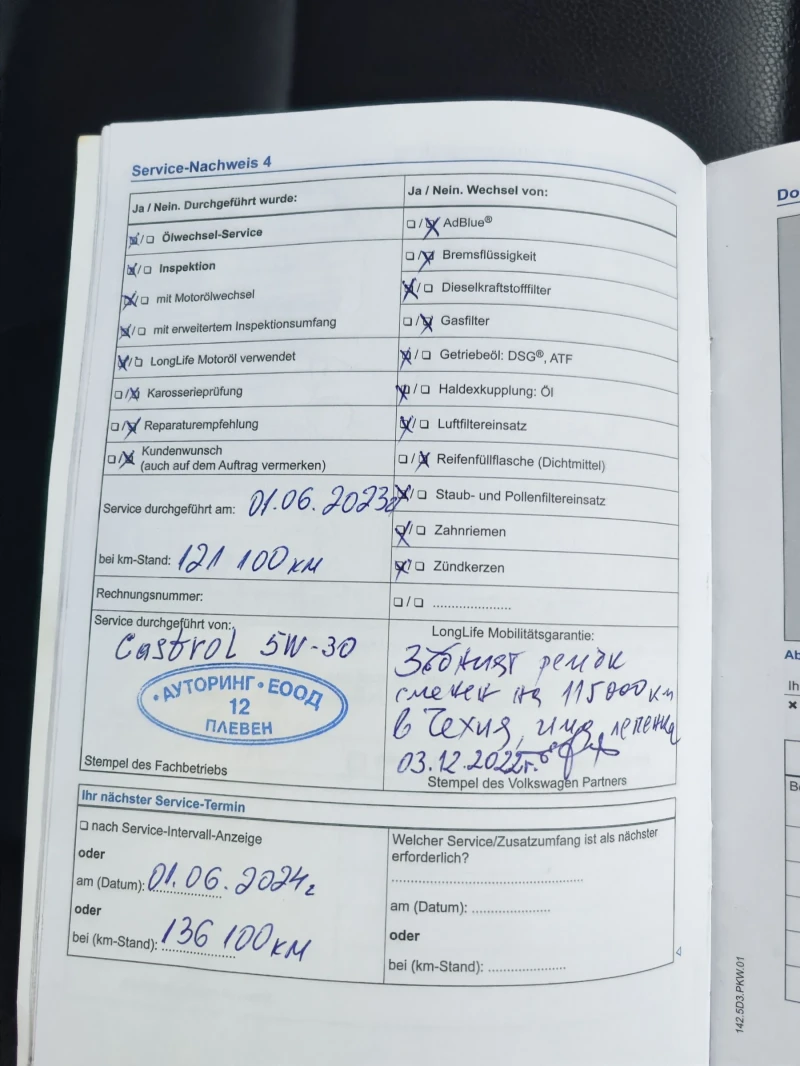 Service-Nachweis 4
Ja / Nein. Durchgeführt wurde:
Ölwechsel-Service
Inspektion
mit Motorölwechsel
mit erweitertem Inspektionsumfang
LongLife Motoröl verwendet
Karosserieprüfung
Reparaturempfehlung
Kundenwunsch
(auch auf dem Auftrag vermerken)
Service durchgeführt am: 01.06.2023г
bei km-Stand: 121 100 км
Rechnungsnummer:
Service durchgeführt von:
Castrol 5W-30
·АУТОРИНГ·ЕООД
12
ПЛЕВЕН
Stempel des Fachbetriebs
Ja / Nein. Wechsel von:
AdBlue®
Bremsflüssigkeit
Dieselkraftstofffilter
Gasfilter
Getriebeöl: DSG®, ATF
Haldexkupplung: Öl
Luftfiltereinsatz
Reifenfüllflasche (Dichtmittel)
Staub- und Pollenfiltereinsatz
Zahnriemen
Zündkerzen
LongLife Mobilitätsgarantie:
Зъбният ремък
сменен на 115000 км
в Чехия, има лепенка
03.12.2022г.
Stempel des Volkswagen Partners
Ihr nächster Service-Termin
nach Service-Intervall-Anzeige
oder
am (Datum): 01.06.2024г
oder
bei (km-Stand): 136 100 км
Welcher Service/Zusatzumfang ist als nächster
erforderlich?
am (Datum):
oder
bei (km-Stand):
4
142.5D3.PKW.01
Do
Ab
Ih